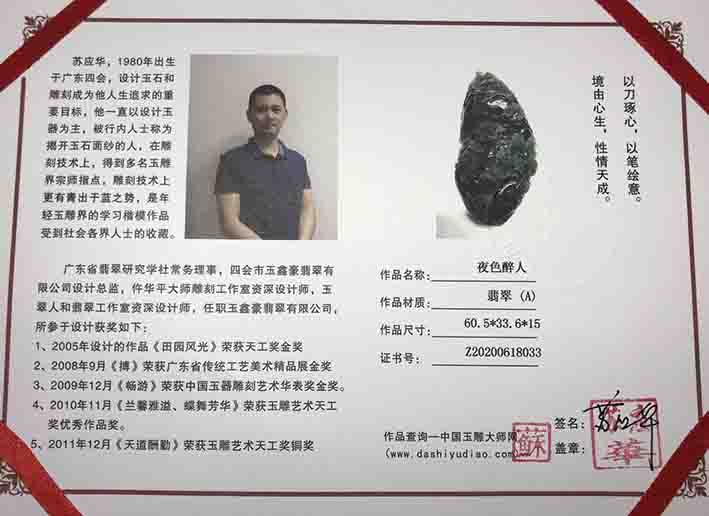 苏应华，1980年出生
于广东四会，设计玉石和
雕刻成为他人生追求的重
要目标，他一直以设计玉
器为主，被行内人士称为
揭开玉石面纱的人，在雕
刻技术上，得到多名玉雕
界宗师指点，雕刻技术上
更有青出于蓝之势，是年
轻玉雕界的学习楷模作品
受到社会各界人士的收藏。
广东省翡翠研究学社常务理事，四会市玉鑫豪翡翠有
限公司设计总监，仵华平大师雕刻工作室资深设计师，玉
翠人和翡翠工作室资深设计师，任职玉鑫豪翡翠有限公司，
所参于设计获奖如下：
1、2005年设计的作品《田园风光》荣获天工奖金奖
2、2008年9月《搏》荣获广东省传统工艺美术精品展金奖
3、2009年12月《畅游》荣获中国玉器雕刻艺术华表奖金奖。
4、2010年11月《兰馨雅逅、蝶舞芳华》荣获玉雕艺术天工
奖优秀作品奖。
5、2011年12月《天道酬勤》荣获玉雕艺术天工奖铜奖
以刀琢心，以笔绘意。
境由心生，性情天成。
作品名称：夜色醉人
作品材质：翡翠（A）
作品尺寸：60.5*33.6*15
证书号：Z20200618033
作品查询—中国玉雕大师网
（www.dashiyudiao.com）
蘇
签名：
盖章：
華